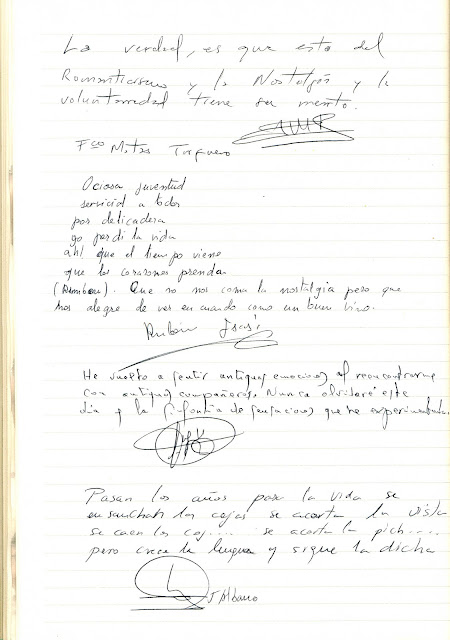 La verdad, es que esto del
Romanticismo y la Nostalgia y la
voluntariedad tiene su mérito.
Fco Matas
Ociosa juventud
servicial a todos
por delicadeza
yo perdí la vida
ah! que el tiempo viene
que los corazones prenda
(Rimbau). Que no nos coma la nostalgia pero que
nos alegre de vez en cuando como un buen vino.
Ruben
He vuelto a sentir antiguas emociones al reencontrarme
con antiguos compañeros. Nunca olvidaré este
día y la sinfonía de sensaciones que he experimentado.
Pasan los años por la vida se
ensanchan las cejas se acorta la vista
se caen los coj.... se acorta la pich....
pero crece la lengua y sigue la dicha
J Albano